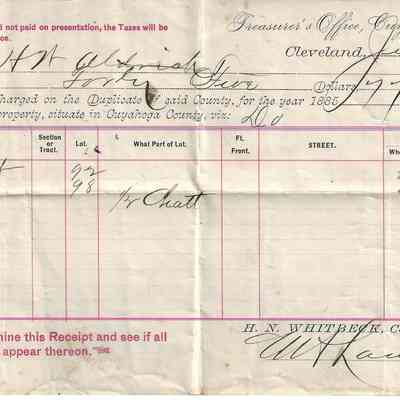 not paid on presentation, the Taxes will be
ce.
Treasurer's Office,
Cleveland,
H N Aldrich
Forty Five Dollars
charged on the Duplicate of said County, for the year 1885
property, situate in Cuyahoga County, viz: Do
Section or Tract. Lot. What Part of Lot. Ft. Front. STREET.
92
98
Chatt
nine this Receipt and see if all
appear thereon."
H. N. WHITBECK, C